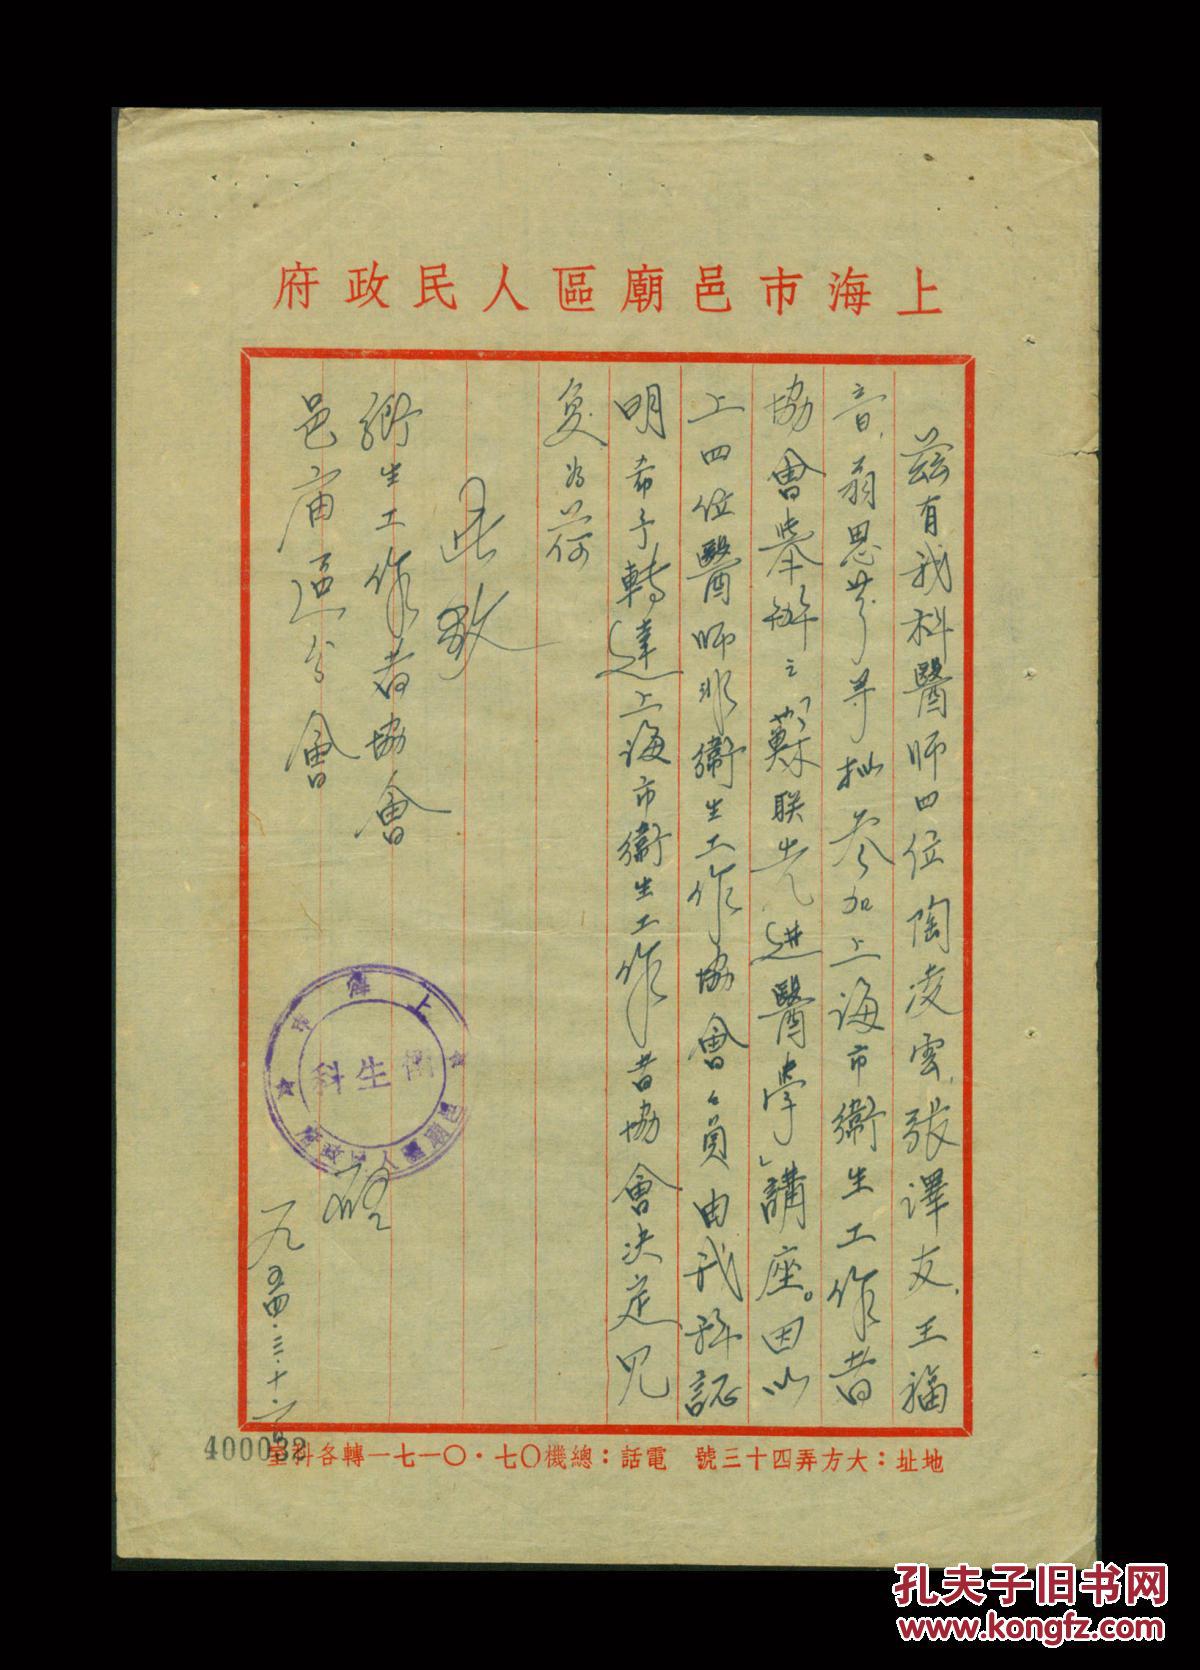 上海市邑廟區人民政府
茲有我科醫師四位陶凌雲、張澤友、王福
音、翁思芬等擬參加上海市衛生工作者
協會舉辦之「蘇联先進醫學」講座。因以
上四位醫師非衛生工作協會会員由我科証
明希予轉達上海市衛生工作者協會決定見
复为荷
此致
衛生工作者協會
邑庙區分會
上海市邑廟區人民政府
衛生科
啟
一九五四.三.十.
地址：大方弄四十三號　電話：總機〇七·〇一七一轉各科室
400032
孔夫子旧书网
www.kongfz.com